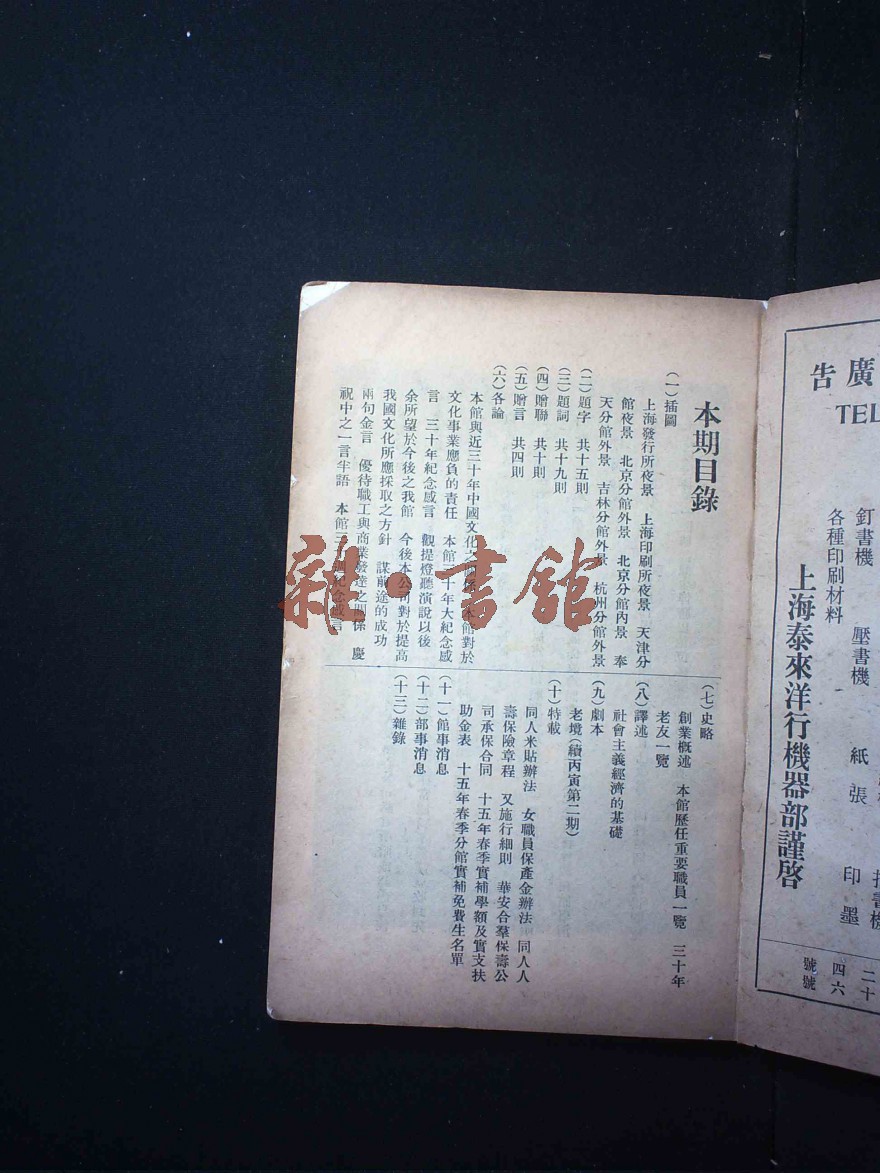 廣告
TEL
釘書機 壓書機 紙張 印墨
各種印刷材料
上海泰來洋行機器部謹啓
二十
四六
號號
本期目錄
(一)插圖
上海發行所夜景 上海印刷所夜景 天津分
館夜景 北京分館外景 北京分館內景 奉
天分館外景 吉林分館外景 杭州分館外景
(二)題字 共十五則
(三)題詞 共十九則
(四)贈聯 共十則
(五)贈言 共四則
(六)各論
本館與近三十年中國文化之關係 本館對於
文化事業應負的責任 本館三十年大紀念感
言 三十年紀念感言 觀提燈聽演說以後
余所望於今後之我館 今後本公司對於提高
我國文化所應採取之方針 謀前途的成功
兩句金言 優待職工與商業發達之關係 慶
祝中之一言半語 本館 紀念感言
(七)史略
創業概述 本館歷任重要職員一覽 三十年
老友一覽
(八)譯述
社會主義經濟的基礎
(九)劇本
老境(續丙寅第二期)
(十)特載
同人米貼辦法 女職員保產金辦法 同人人
壽保險章程 又施行細則 華安合羣保壽公
司承保合同 十五年春季實補學額及實支扶
助金表 十五年春季分館實補免費生名單
(十一)館事消息
(十二)部事消息
(十三)雜錄
雜·書館